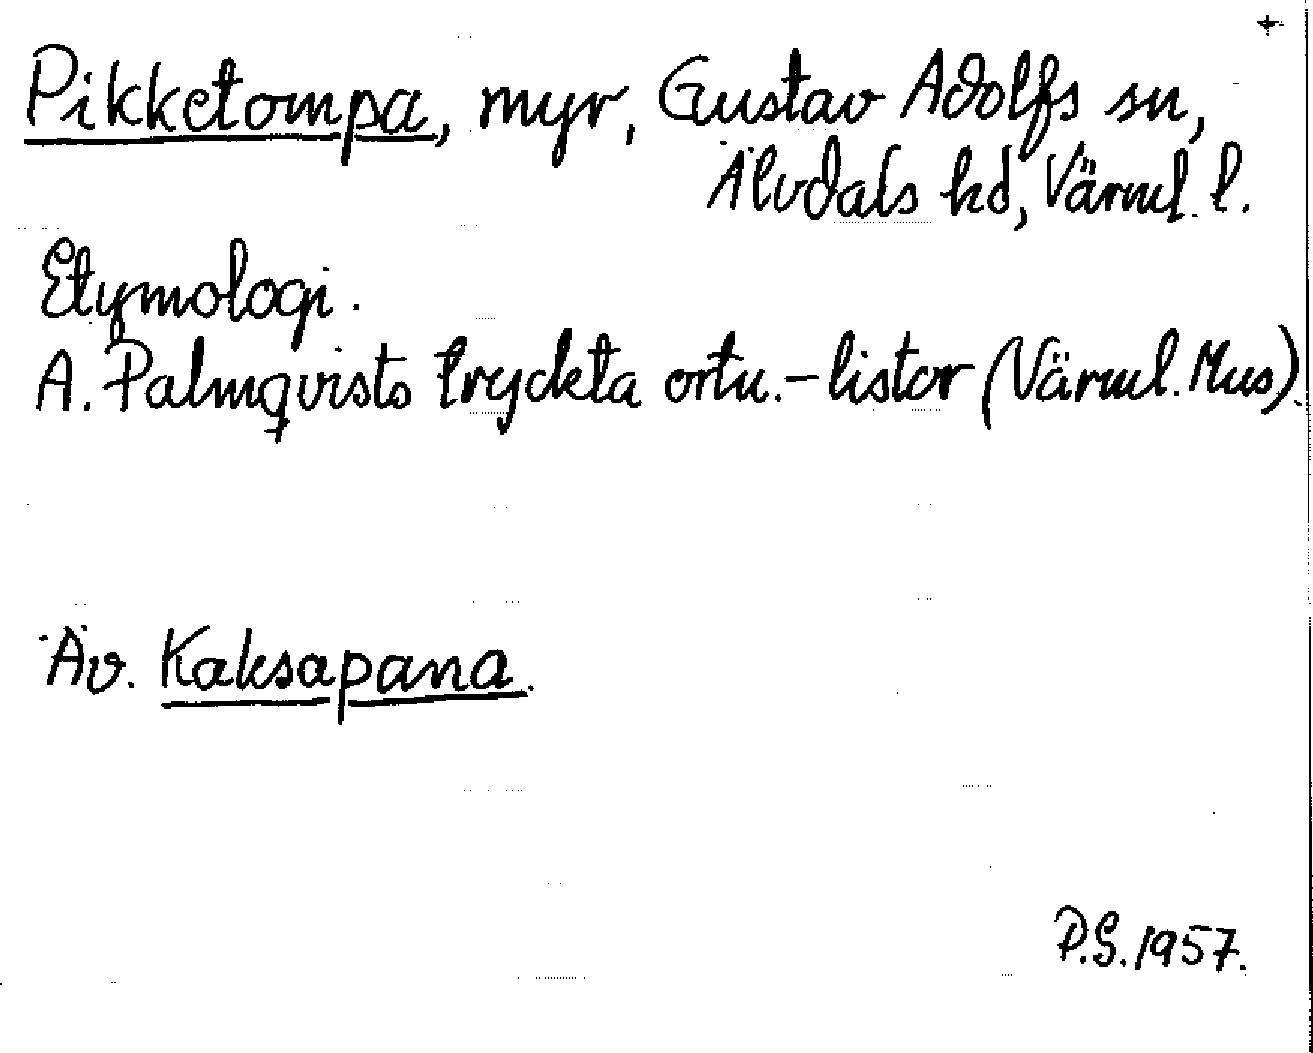 Pikketompa, myr, Gustav Adolfs sn,
Älvdals hd, Värml. l.
Etymologi.
A. Palmqvists tryckta ortn.-listor (Värml. Mus).
Äv. Kaksapana.
P.S. 1957.